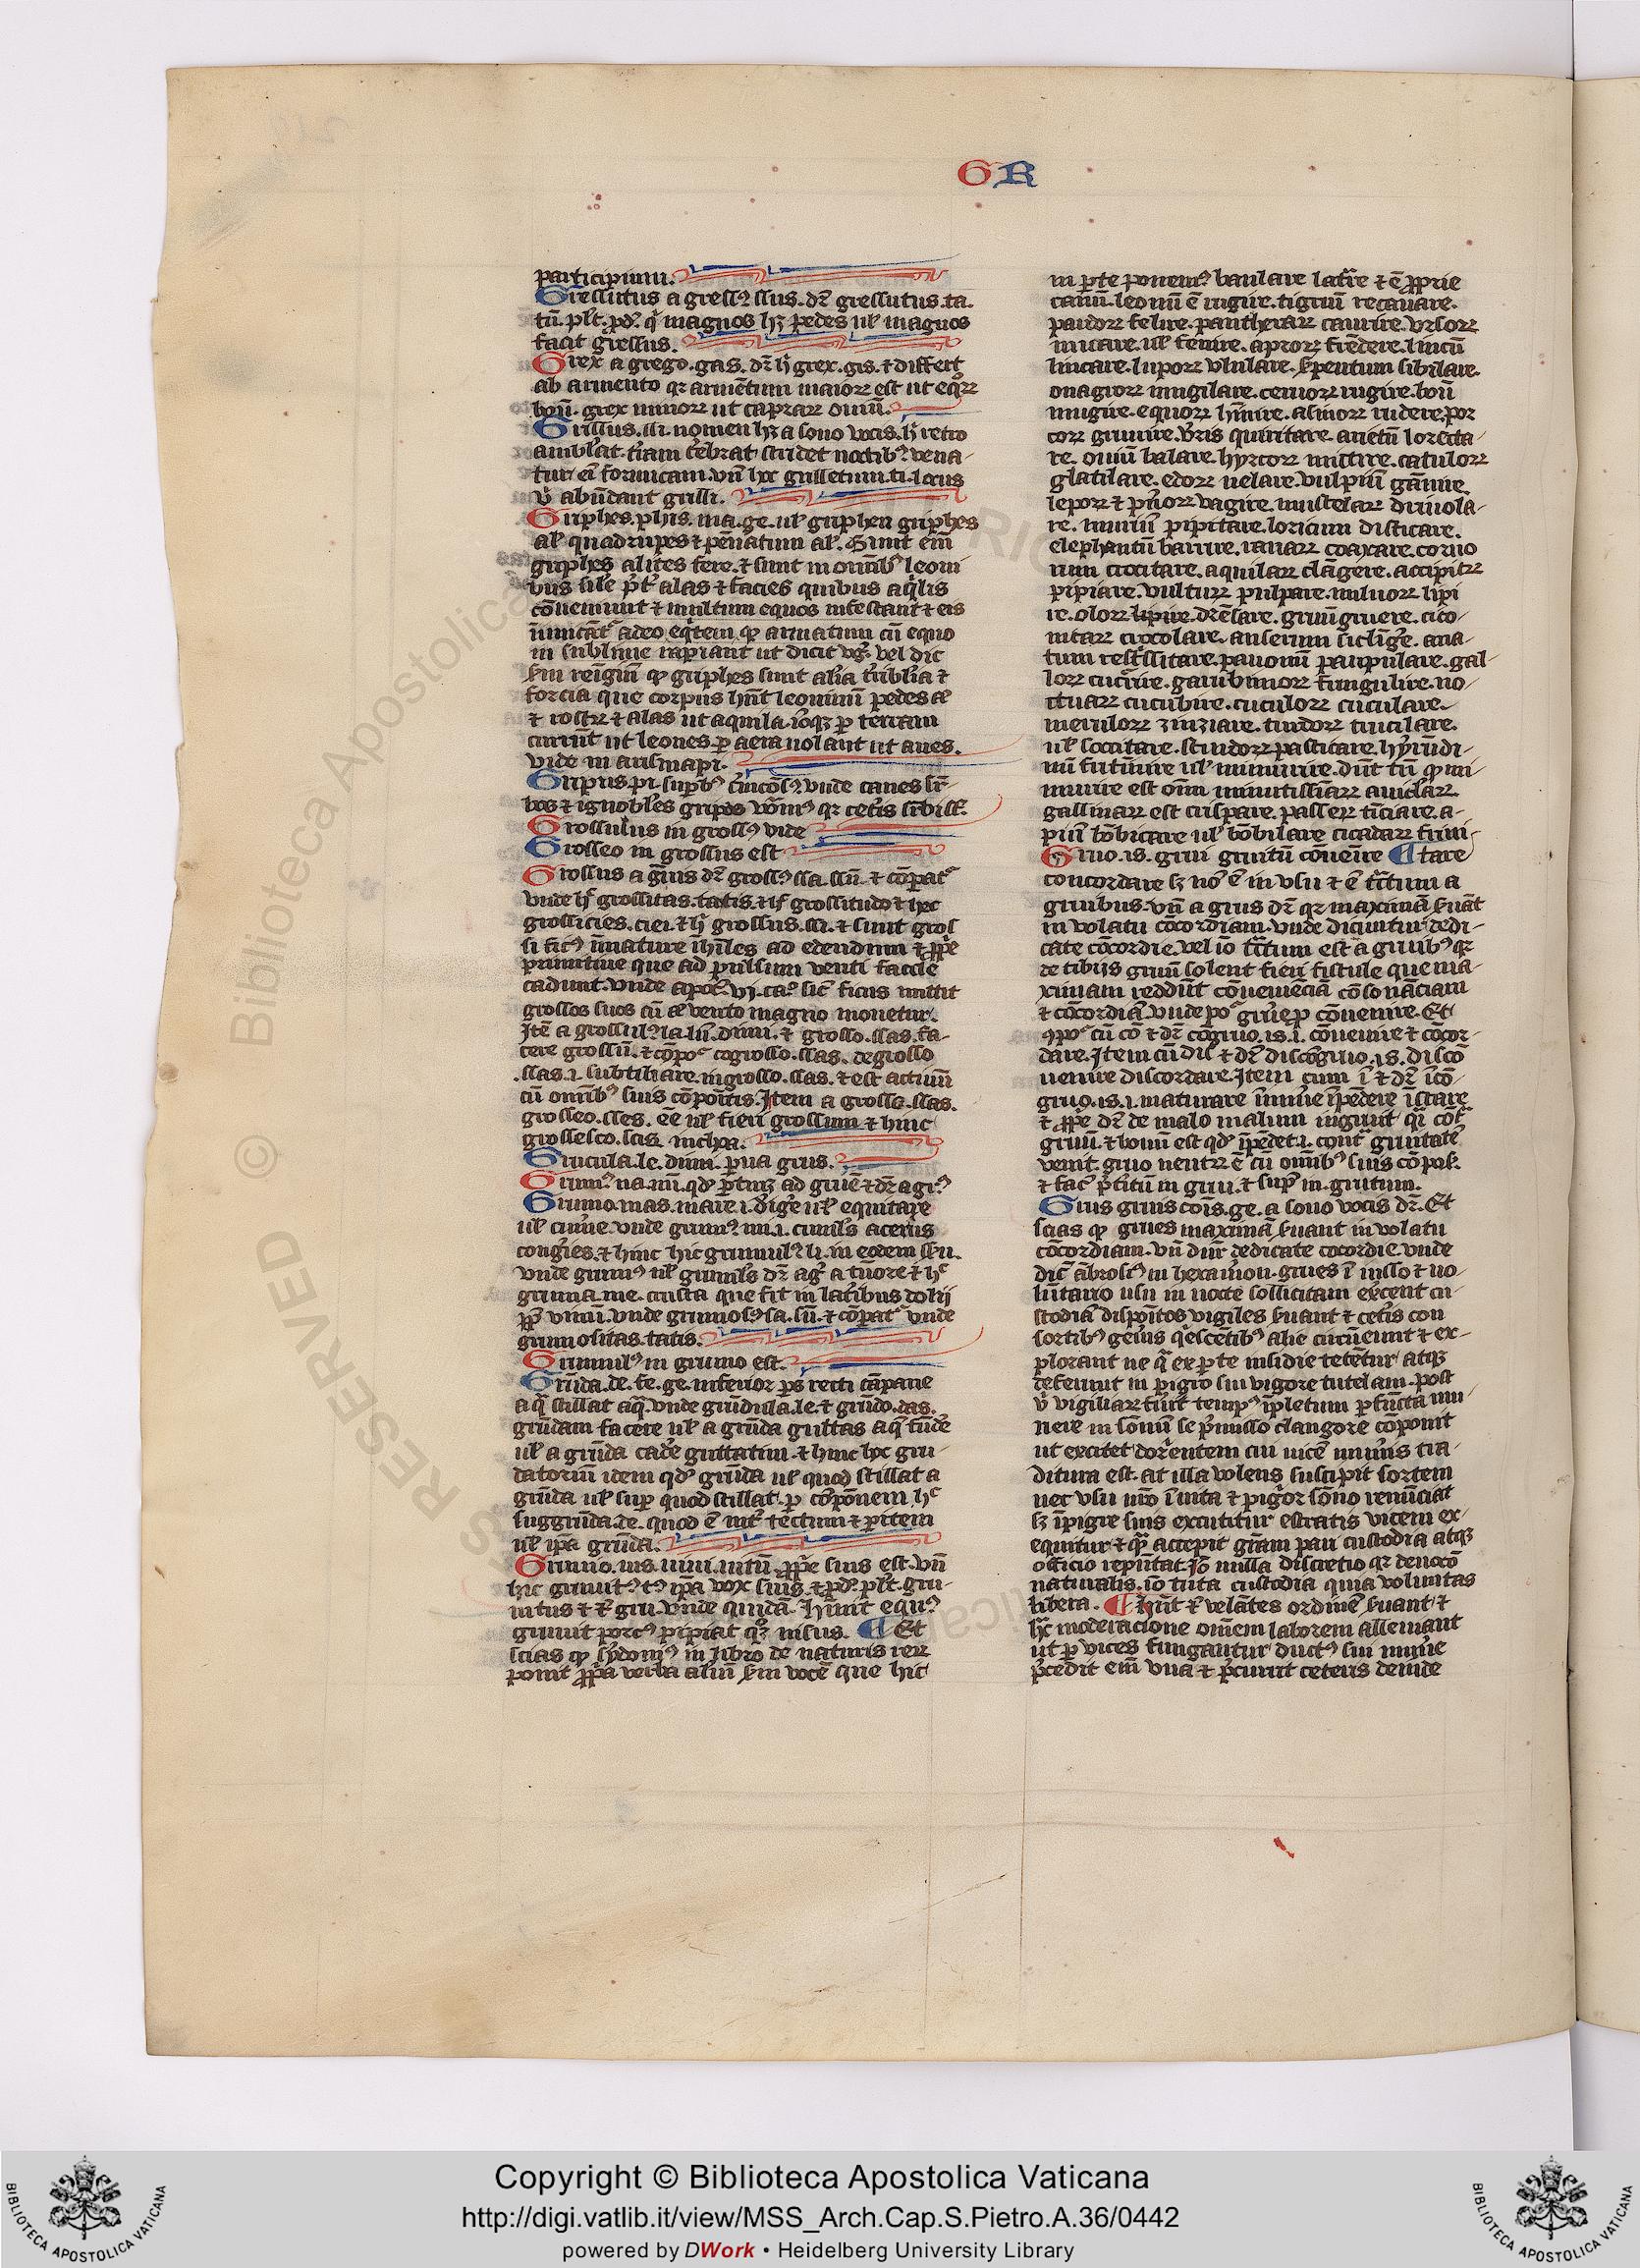 GR
participium.
Gressutus a gressꝰ ssus. dr̄ gressutus. ta.
tū. pl̄t. ꝓd'. qͥ magnos hꝫ pedes ul' magnos
facit gressus.
Grex a grego. gas. dr̄ h̓ grex. gis. ⁊ differt
ab armento qꝛ armētum maioꝝ est ut eqͦꝝ
boū. grex minoꝝ ut capraꝝ ouiū.
Grillus. lli. nomen hꝫ a sono vocis. h̓ retro
ambl̓at. t̓ram t̓ebrat stridet noctibꝰ vena-
tur eī formicam. vn̄ hoc grilletum. ti. locus
v̓ abūdant grilli.
Griphes. phis. ma. ge. ul' griphen griphes
al' quadrupes ⁊ pēnatum al'. Sunt em̄
griphes alites fere. ⁊ sunt in om̄ibꝰ leoni
bus sil'e p̄t' alas ⁊ facies quibus aq̓lis
cōueniunt ⁊ multum equos infestant ⁊ eis
adeo eq̓tem ꝙ armatum cū equo
in sublime rapiant ut dicit vel dic
ꝙ griphes sunt al̓ia t̓ribl̓ia ⁊
forcia que corpus hn̄t leoninū pedes
⁊ rostꝝ ⁊ alas ut aquila. ꝑ terram
currūt ut leones. ꝑ aera uolant ut aues.
vide in arismapi.
Gripus. pi. suꝑbꝰ vnde canes
bos ⁊ ignobl̓es gripos qꝛ cet̓is
Grossulus in grossꝰ vide
Grosseo in grossus est
Grossus a dr̄ grossꝰ ssa. ssū. ⁊ cōꝑatᷣ
vnde h̓ grossitas. tatis. ⁊ h̓ grossitudo ⁊ hec
grossicies. ciei. ⁊ h̓ grossus. ssi. ⁊ sunt gros
si ficꝰ īmature īhil̓es ad edendum ⁊ ꝓpͥe
primitiue que ad pulsum venti facile
cadunt. vnde apoc'. vj. ca. sic̄ ficus mittit
grossos suos cū vento magno mouetur.
Itē a grossulꝰ la. lū. dimi. ⁊ grosso. ssas. fa-
cere grossū. ⁊ cōpoᷣ cōgrosso. ssas. degrosso
.ssas. i. subtiliare. ingrosso. ssas. ⁊ est actiuū
cū om̄ibꝰ suis cōpoītis. Item a grosso. ssas.
grosseo. sses. ē̄e ul' fieri grossum ⁊ hinc
grossesco. scis. inchoa.
Grucula. le. dimi. ꝑua grus.
Grumo. mas. mare. i. dirig̓e ul' equitare
ul' cumul̓e. vnde grumꝰ mi. i. cumul̓s aceruꝰ
congr̓ies. ⁊ hinc hic grumulꝰ li. in eodem ssu.
vnde grumꝰ ul' grumul̓s dr̄ ag' a t̓more ⁊ hᷣ
gruma. me. crusta que fit in lat̓ibus dolij
ꝓp̄ vinū. vnde grumosꝰ sa. sū. ⁊ cōꝑatᷣ vnde
grumositas. tatis.
Grumulꝰ in grumo est.
Grūda. de. fe. ge. inferior ꝑs recti cāpane
a qͣ stillat aqͣ. vnde grūdula. le. ⁊ grūdo. das.
grūdam facere ul' a grūda guttas aqͣ fūde̓
ul' a grūda cade̓ guttatim. ⁊ hinc hoc gru-
datoriū idem qd' grūda ul' quod stillat a
grūda ul' suꝑ quod stillat. ꝑ cōpōnem hᷣ
suggrūda. de. quod ē int̓ tectum ⁊ ꝑitem
ul' ip̄a grūda.
Grunio. nis. niui. nitū. ꝓpͥe suis est. vn̄
hic grunitꝰ tꝰ ip̄a vox suis. ⁊ ꝓd'. pl̄t. gru-
nitus ⁊ t̄ gru. vnde quidā. Hinnit equꝰ
grunit porcꝰ pipiat qͦꝫ nisus. ¶ Et
scias ꝙ sydoniꝰ in libro de naturis reꝝ
ponit ꝓpͥa verba al̓iū s̄m vocē que hic
in ꝑte ponemꝰ baulare latr̓re ⁊ ē ꝓprie
canū. leonū ē rugire. tigriū recauare.
pardoꝝ felire. pantheraꝝ caurire. vrsoꝝ
uncare. ul' seuire. aproꝝ frēdere. lincū
lincare. lupoꝝ vlulare. s̓pentum sibilare.
onagroꝝ mugilare. ceruoꝝ rugire. boū
mugire. equoꝝ hīnire. asinoꝝ rudere. por
coꝝ grunire. v̓ris quiritare. arietū lorecta-
re. ouiū balare. hyrcoꝝ mictire. catuloꝝ
glatilare. edoꝝ uelare. vulpiū gānire
lepoꝝ ⁊ pu̓oꝝ vagire. mustelaꝝ driuola-
re. muriū pipitare. loricum disticare.
elephantū barrire. ranaꝝ coaxare. coruo
rum crocitare. aquilaꝝ clāgere. accipitꝝ
pipiare. vultuꝝ pulpare. miluoꝝ lipi
re. oloꝝ lipire drēsare. gruū gruere. cico
niaꝝ crocolare. anserum sclīge̓. ana-
tum pauonū paupulare. gal-
loꝝ cucr̓ire. fringulire. no-
ctuaꝝ cucubire. cuculoꝝ cuculare.
meruloꝝ zinziare. turdoꝝ trucilare.
ul' soccitare. strudoꝝ pastitare. hyrūdi-
nū ul' minurire. dūt tn̄ ꝙ mi
nurire est oīm minutissiaꝝ auiclaꝝ.
gallinaꝝ est crispare. passeꝝ ticiare. a-
piū bōbicare ul' bōbilare cicadaꝝ frini-
Gruo. is. grui gruitū cōuenire ¶ tare
concordare sꝫ nō ē in vsu ⁊ ē tc̄tum a
gruibus. vn̄ a grus dr̄ qꝛ maximā s̓uāt
in volatu cōcordiam. vnde dicuntur dedi-
cate cōcordie. vel iō tc̄tum est a gruibꝰ qꝛ
de tibijs gruū solent fieri fistule que ma-
ximam reddūt cōuenieciā cōsonāciam
⁊ cōcordiā. vnde poᷣ gruē ꝓ conuenire. Et
ꝯpoᷣ cū cō ⁊ dr̄ cōgruo. is. i. conuenire ⁊ cōcor-
dare. Item cū dis ⁊ dr̄ discōgruo. is. disco
uenire discordare. Item cum ī ⁊ dr̄ īcō-
gruo. is. i. maturare īminē īpedere īstare
⁊ ꝓpͥe dr̄ de malo malum ingruit
gruū. ⁊ bonū est qd' īpēdet. i. contͣ gruitatē
venit. gruo neutꝝ ē cū om̄ibꝰ suis cōpos̄.
⁊ fac̄ p̄titū in grui. ⁊ suꝑ in. gruitum.
Grus gruis cōis. ge. a sono vocis dr̄. Et
scias ꝙ grues maximā s̓uant in volatu
cōcordiam. vn̄ dn̄r dedicate cōcordie. vnde
dic̄ ābrosiꝰ in hexam̓on. grues ī iusso ⁊ uo-
lūtario usu in nocte sollicitam exc̓ent cu-
stodiā dispoītos vigiles s̓uant ⁊ cet̓is con
sortibꝰ gen̓is qͥescētibꝰ alie circūeunt ⁊ ex-
plorant ne qͣ ex ꝑte insidie tetētur atqꝫ
deferunt in pigro sui vigore tutelam. post
v̓ vigiliaꝝ fūit tempꝰ īpletum ꝑfūcta mu-
nere in sōnū se p̄misso clangore cōponit
ut excitet dor̓entem cui uicē mun̓is tra-
ditura est. at illa volens suscipit sortem
nec vsu nr̄o īuita ⁊ pigͥor sōno renūciat
sꝫ īpigre suis excutitur estratis vicem ex-
equitur ⁊ qͣm accepit gr̄am pari custodia atqꝫ
officio repn̄tat. Iō nulla discretio qꝛ deuoco
naturalis. iō tuta custodia quia voluntas
libera. ¶ Hn̄t ⁊ velātes ordinē s̓uant ⁊
hͣc moderacione om̄em laborem alleuiant
ut ꝑ vices fungantur ductꝰ sui mun̓e
p̄cedit em̄ vna ⁊ p̄currit ceteris deinde
Copyright © Biblioteca Apostolica Vaticana
http://digi.vatlib.it/view/MSS_Arch.Cap.S.Pietro.A.36/0442
powered by DWork • Heidelberg University Library
BIBLIOTECA APOSTOLICA VATICANA
BIBLIOTECA APOSTOLICA VATICANA